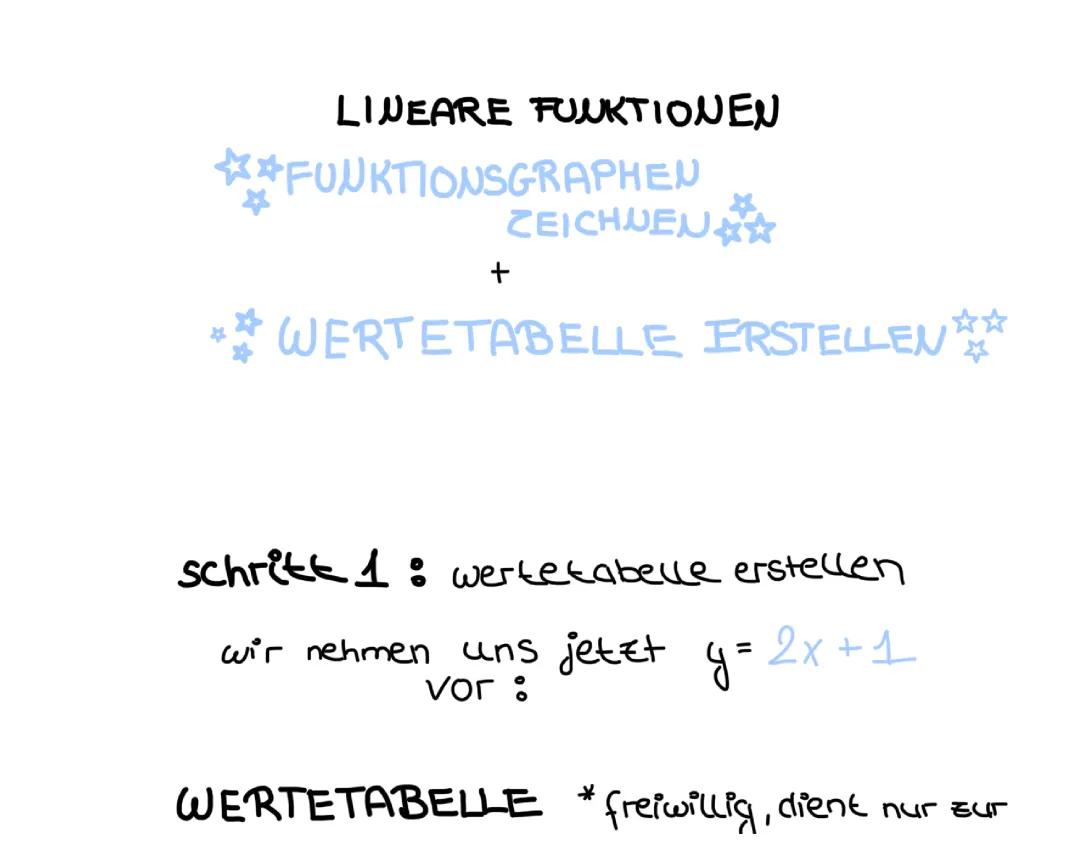 LINEARE FUNKTIONEN
FUNKTIONSGRAPHEN
ZEICHNEN
+
WERTETABELLE ERSTELLEN
schritt 1: wertetabelle erstellen
wir nehmen uns jetzt y = 2x + 1
vor:
WERTETABELLE *freiwillig, dient nur zur